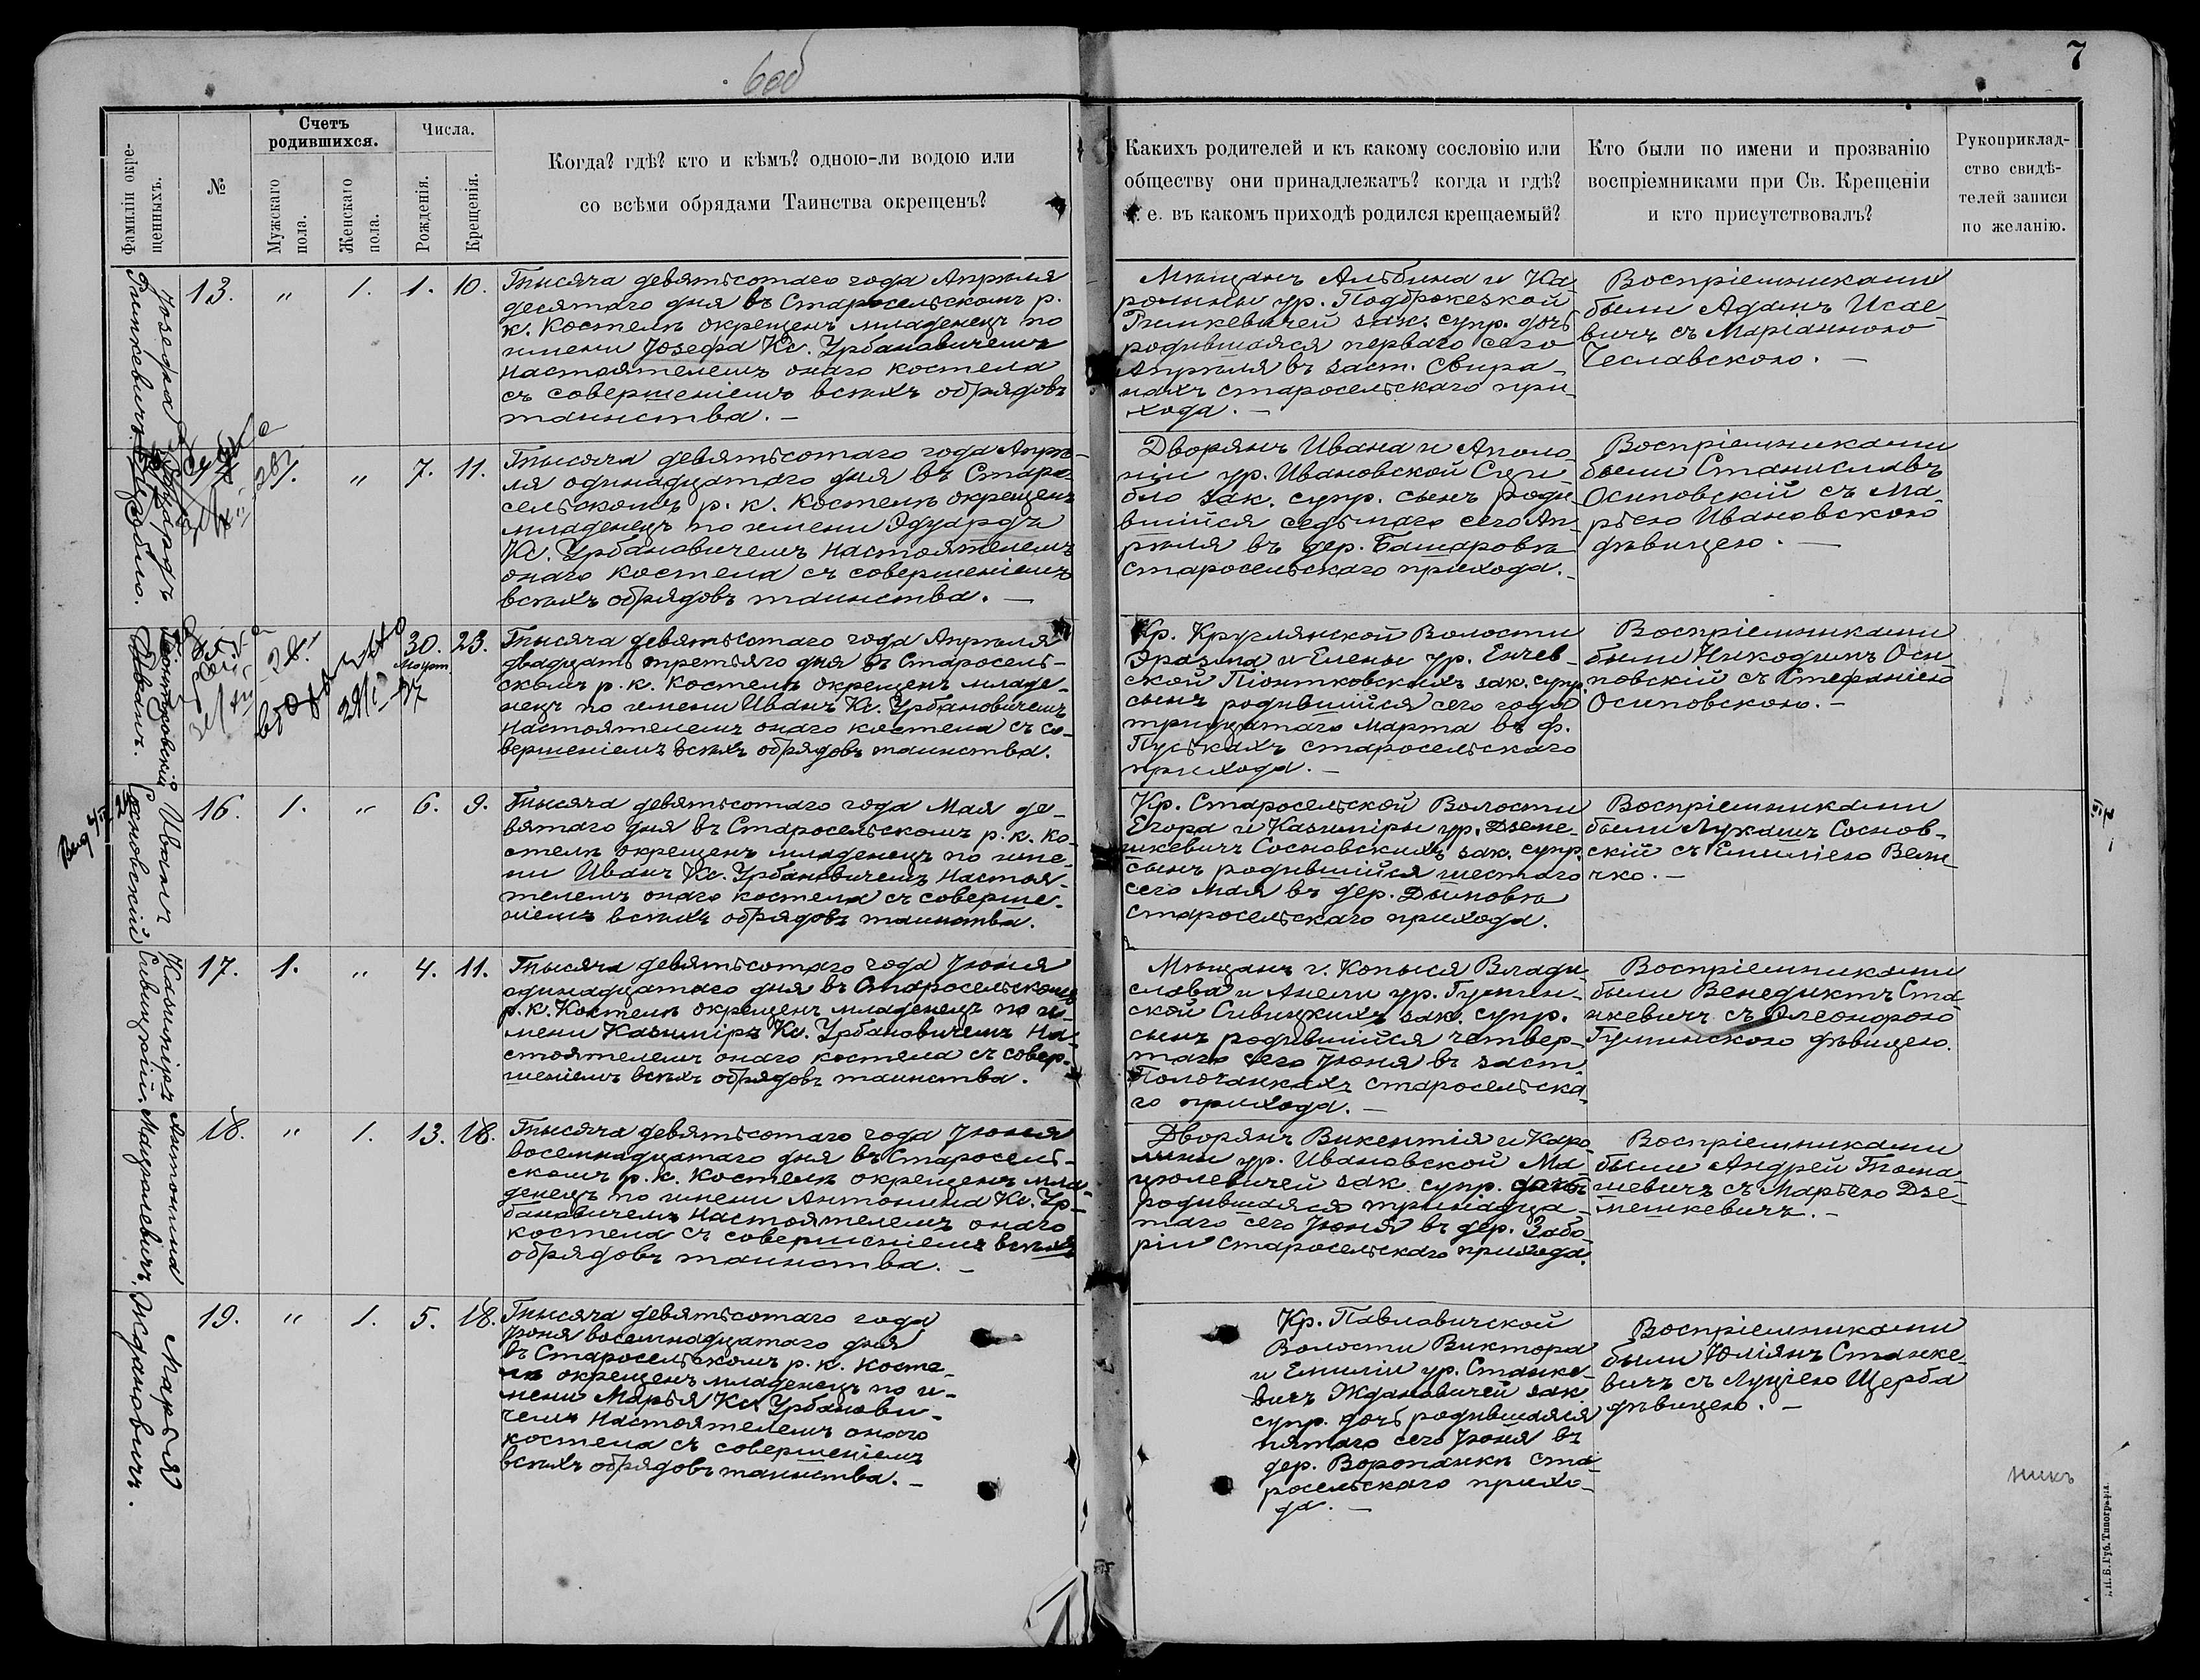 6об
7
Фамиліи окре-
щенныхъ.
№
Счетъ
родившихся.
Мужскаго
пола.
Женскаго
пола.
Числа.
Рожденія.
Крещенія.
Когда? гдѣ? кто и кѣмъ? одною-ли водою или
со всѣми обрядами Таинства окрещенъ?
Какихъ родителей и къ какому сословію или
обществу они принадлежатъ? когда и гдѣ?
т. е. въ какомъ приходѣ родился крещаемый?
Кто были по имени и прозванію
воспріемниками при Св. Крещеніи
и кто присутствовалъ?
Рукоприклад-
ство свидѣ-
телей записи
по желанію.
Юзефа
Римкевичъ
13. " 1. 1. 10.
Тысяча девятьсотаго года Апрѣля
десятаго дня въ Старосельскомъ р.
к. Костелѣ окрещенъ младенецъ по
имени Юзефа Кс. Урбановичемъ
Настоятелемъ онаго костела
съ совершеніемъ всѣхъ обрядовъ
таинства. —
Мѣщанъ Альбина и Ка-
ролины ур. Подброкезкой
Римкевичей зак. супр. дочь
родившаяся перваго сего
Апрѣля въ заст. Свира-
нахъ старосельскаго при-
хода. —
Воспріемниками
были Адамъ Исае-
вичъ съ Маріанною
Чеславскою. —
Эдуардъ
1. " 7. 11.
Тысяча девятьсотаго года Апрѣ-
ля одинадцатаго дня въ Старо-
сельскомъ р. к. Костелѣ окрещенъ
младенецъ по имени Эдуардъ
Кс. Урбановичемъ Настоятелемъ
онаго костела съ совершеніемъ
всѣхъ обрядовъ таинства. —
Дворянъ Ивана и Аполо-
ніи ур. Ивановской Суди-
бло зак. супр. сынъ роди-
вшійся седьмаго сего Ап-
рѣля въ дер. Башаровѣ
старосельскаго прихода. —
Воспріемниками
были Станиславъ
Осиповскій съ Ма-
рьею Ивановскою
дѣвицею. —
Піонтковскій
Иванъ.
30. 23.
Март.
Тысяча девятьсотаго года Апрѣля
двадцать третьяго дня въ Старосель-
скомъ р. к. Костелѣ окрещенъ младе-
нецъ по имени Иванъ Кс. Урбановичемъ
Настоятелемъ онаго костела съ со-
вершеніемъ всѣхъ обрядовъ таинства.
Кр. Круглянской Волости
Эразма и Елены ур. Енчев-
ской Піонтковскихъ зак. супр.
сынъ родившійся сего года
тридцатаго Марта въ ф.
Пуськахъ старосельскаго
прихода. —
Воспріемниками
были Никодимъ Оси-
повскій съ Стефаніею
Осиповскою. —
Иванъ
Сосновскій
16. 1. " 6. 9.
Тысяча девятьсотаго года Мая де-
вятаго дня въ Старосельскомъ р. к. Ко-
стелѣ окрещенъ младенецъ по име-
ни Иванъ Кс. Урбановичемъ Настоя-
телемъ онаго костела съ соверше-
ніемъ всѣхъ обрядовъ таинства.
Кр. Старосельской Волости
Егора и Казиміры ур. Дземе-
шкевичъ Сосновскихъ зак. супр.
сынъ родившійся шестаго
сего мая въ дер. Дымовѣ
старосельскаго прихода.
Воспріемниками
были Лукашъ Соснов-
скій съ Емиліею Вели-
чко. —
Казиміръ
Сивицкій.
17. 1. " 4. 11.
Тысяча девятьсотаго года Іюня
одинадцатаго дня въ Старосельскомъ
р. к. Костелѣ окрещенъ младенецъ по и-
мени Казиміръ Кс. Урбановичемъ На-
стоятелемъ онаго костела съ совер-
шеніемъ всѣхъ обрядовъ таинства.
Мѣщанъ г. Копыся Влади-
слава и Анели ур. Гумин-
ской Сивицкихъ зак. супр.
сынъ родившійся четвер-
таго сего Іюня въ заст.
Полочанкахъ старосельска-
го прихода. —
Воспріемниками
были Венедиктъ Ста-
нкевичъ съ Элеонорою
Гуминскою дѣвицею.
Антонина
Мацулевичъ
18. " 1. 13. 18.
Тысяча девятьсотаго года Іюня
восемнадцатаго дня въ Старосель-
скомъ р. к. Костелѣ окрещенъ мла-
денецъ по имени Антонина Кс. Ур-
бановичемъ Настоятелемъ онаго
костела съ совершеніемъ всѣхъ
обрядовъ таинства. —
Дворянъ Викентія и Каро-
лины ур. Ивановской Ма-
цюлевичей зак. супр. дочь
родившаяся тринадца-
таго сего Іюня въ дер. Забо-
ріи старосельскаго прихода.
Воспріемниками
были Андрей Тома-
шевичъ съ Марьею Дзе-
мешкевичъ. —
Марья
Ждановичъ.
19. " 1. 5. 18.
Тысяча девятьсотаго года
Іюня восемнадцатаго дня
въ Старосельскомъ р. к. Косте-
лѣ окрещенъ младенецъ по и-
мени Марья Кс. Урбанови-
чемъ Настоятелемъ онаго
костела съ совершеніемъ
всѣхъ обрядовъ таинства. —
Кр. Павловичской
Волости Виктора
и Емиліи ур. Станке-
вичъ Ждановичей зак.
супр. дочь родившаяся
пятаго сего Іюня въ
дер. Воропанки ста-
росельскаго прихо-
да. —
Воспріемниками
были Юліянъ Станке-
вичъ съ Луціею Щерба
дѣвицею. —
никъ
Губ. Типографія.